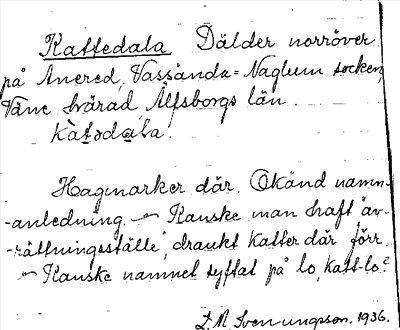 Kattedala Dälder norröver
på Anered, Vassända=Naglum socken,
Väne härad, Älfsborgs län.
kàtəda̲la.
Hagmarker där. Okänd namn-
-anledning. — Kanske man haft "av-
-rättningsställe", dränkt katter där förr.
— Kanske namnet syftat på lo, katt-lo?
L. M. Svenungsson. 1936.